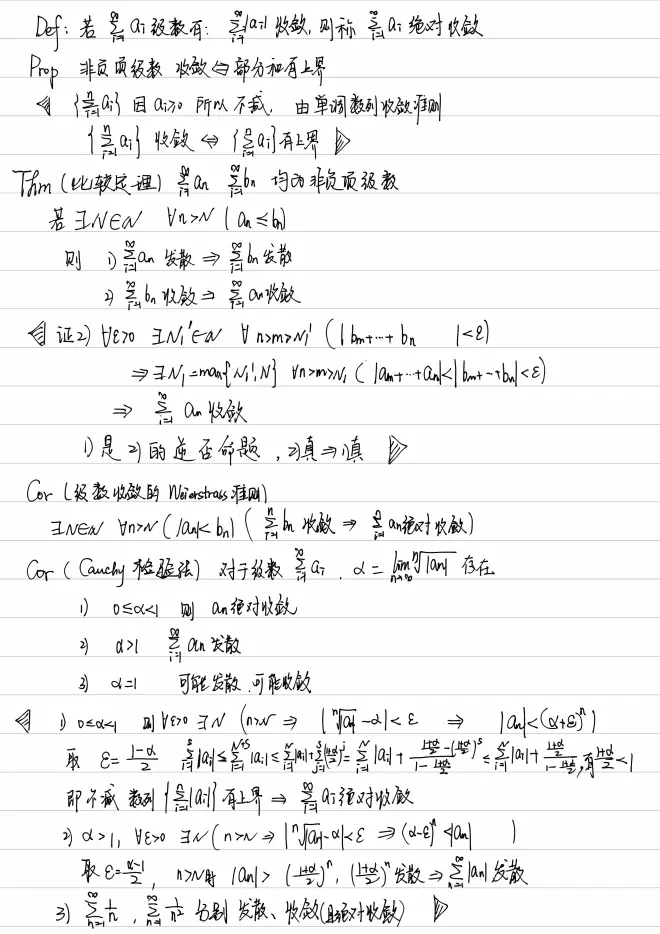 Def: 若 $\sum_{i=1}^{\infty} a_i$ 级数有: $\sum_{i=1}^{\infty} |a_i|$ 收敛, 则称 $\sum_{i=1}^{\infty} a_i$ 绝对收敛
Prop 非负项级数 收敛 ⇔ 部分和有上界
◁ {$\sum_{i=1}^{n} a_i$} 因 $a_i \geq 0$ 所以不减, 由单调数列收敛准则
{$\sum_{i=1}^{n} a_i$} 收敛 ⇔ {$\sum_{i=1}^{n} a_i$} 有上界 ▷
Thm (比较定理) $\sum_{i=1}^{\infty} a_n$ $\sum_{i=1}^{\infty} b_n$ 均为非负项级数
若 ∃N∈N ∀n>N ( $a_n \leq b_n$ )
则 1) $\sum_{i=1}^{\infty} a_n$ 发散 ⇒ $\sum_{i=1}^{\infty} b_n$ 发散
2) $\sum_{i=1}^{\infty} b_n$ 收敛 ⇒ $\sum_{i=1}^{\infty} a_n$ 收敛
◁ 证2) ∀ε>0 ∃N₁'∈N ∀ n>m>N₁' ( |$b_m+\cdots+b_n$ |<ε)
⇒ ∃N₁=max{N₁',N} ∀n>m>N₁ ( |$a_m+\cdots+a_n$|<|$b_m+\cdots+b_n$|<ε)
⇒ $\sum_{i=1}^{\infty} a_n$ 收敛
1)是2)的逆否命题, 2)真⇒1)真 ▷
Cor (级数收敛的 Weierstrass 准则)
∃N∈N ∀n>N ( |$a_n$|< $b_n$) ( $\sum_{i=1}^{n} b_n$ 收敛 ⇒ $\sum_{i=1}^{n} a_n$ 绝对收敛)
Cor ( Cauchy 检验法) 对于级数 $\sum_{i=1}^{\infty} a_i$ . $\alpha = \lim_{n\to\infty} \sqrt[n]{|a_n|}$ 存在
1) 0≤α<1 则 $a_n$ 绝对收敛
2) α>1 $\sum_{i=1}^{\infty} a_n$ 发散
3) α=1 可能发散, 可能收敛
◁ 1) 0≤α<1 则∀ε>0 ∃N (n>N ⇒ |$\sqrt[n]{|a_n|}-\alpha$|<ε ⇒ |$a_n$|<$(\alpha+\varepsilon)^n$)
取 $\varepsilon=\frac{1-\alpha}{2}$ $\sum_{i=1}^{s}|a_i| \leq \sum_{i=1}^{N+s}|a_i| \leq \sum_{i=1}^{N}|a_i|+\sum_{i=1}^{s}(\frac{1+\alpha}{2})^i = \sum_{i=1}^{N}|a_i|+\frac{\frac{1+\alpha}{2}-(\frac{1+\alpha}{2})^s}{1-\frac{1+\alpha}{2}} \leq \sum_{i=1}^{N}|a_i|+\frac{\frac{1+\alpha}{2}}{1-\frac{1+\alpha}{2}}$, 有 $\frac{1+\alpha}{2}<1$
即不减 数列 {$\sum_{i=1}^{n}|a_i|$} 有上界 ⇒ $\sum_{i=1}^{\infty} a_i$ 绝对收敛
2) α>1, ∀ε>0 ∃N ( n>N ⇒ |$\sqrt[n]{|a_n|}-\alpha$|<ε ⇒ $(\alpha-\varepsilon)^n$<|$a_n$| )
取 $\varepsilon=\frac{\alpha-1}{2}$, n>N时 |$a_n$|> $(\frac{1+\alpha}{2})^n$, $(\frac{1+\alpha}{2})^n$ 发散 ⇒ $\sum_{n=1}^{\infty}|a_n|$ 发散
3) $\sum_{n=1}^{\infty}\frac{1}{n}$ , $\sum_{n=1}^{\infty}\frac{1}{n^2}$ 分别 发散、收敛(且绝对收敛) ▷